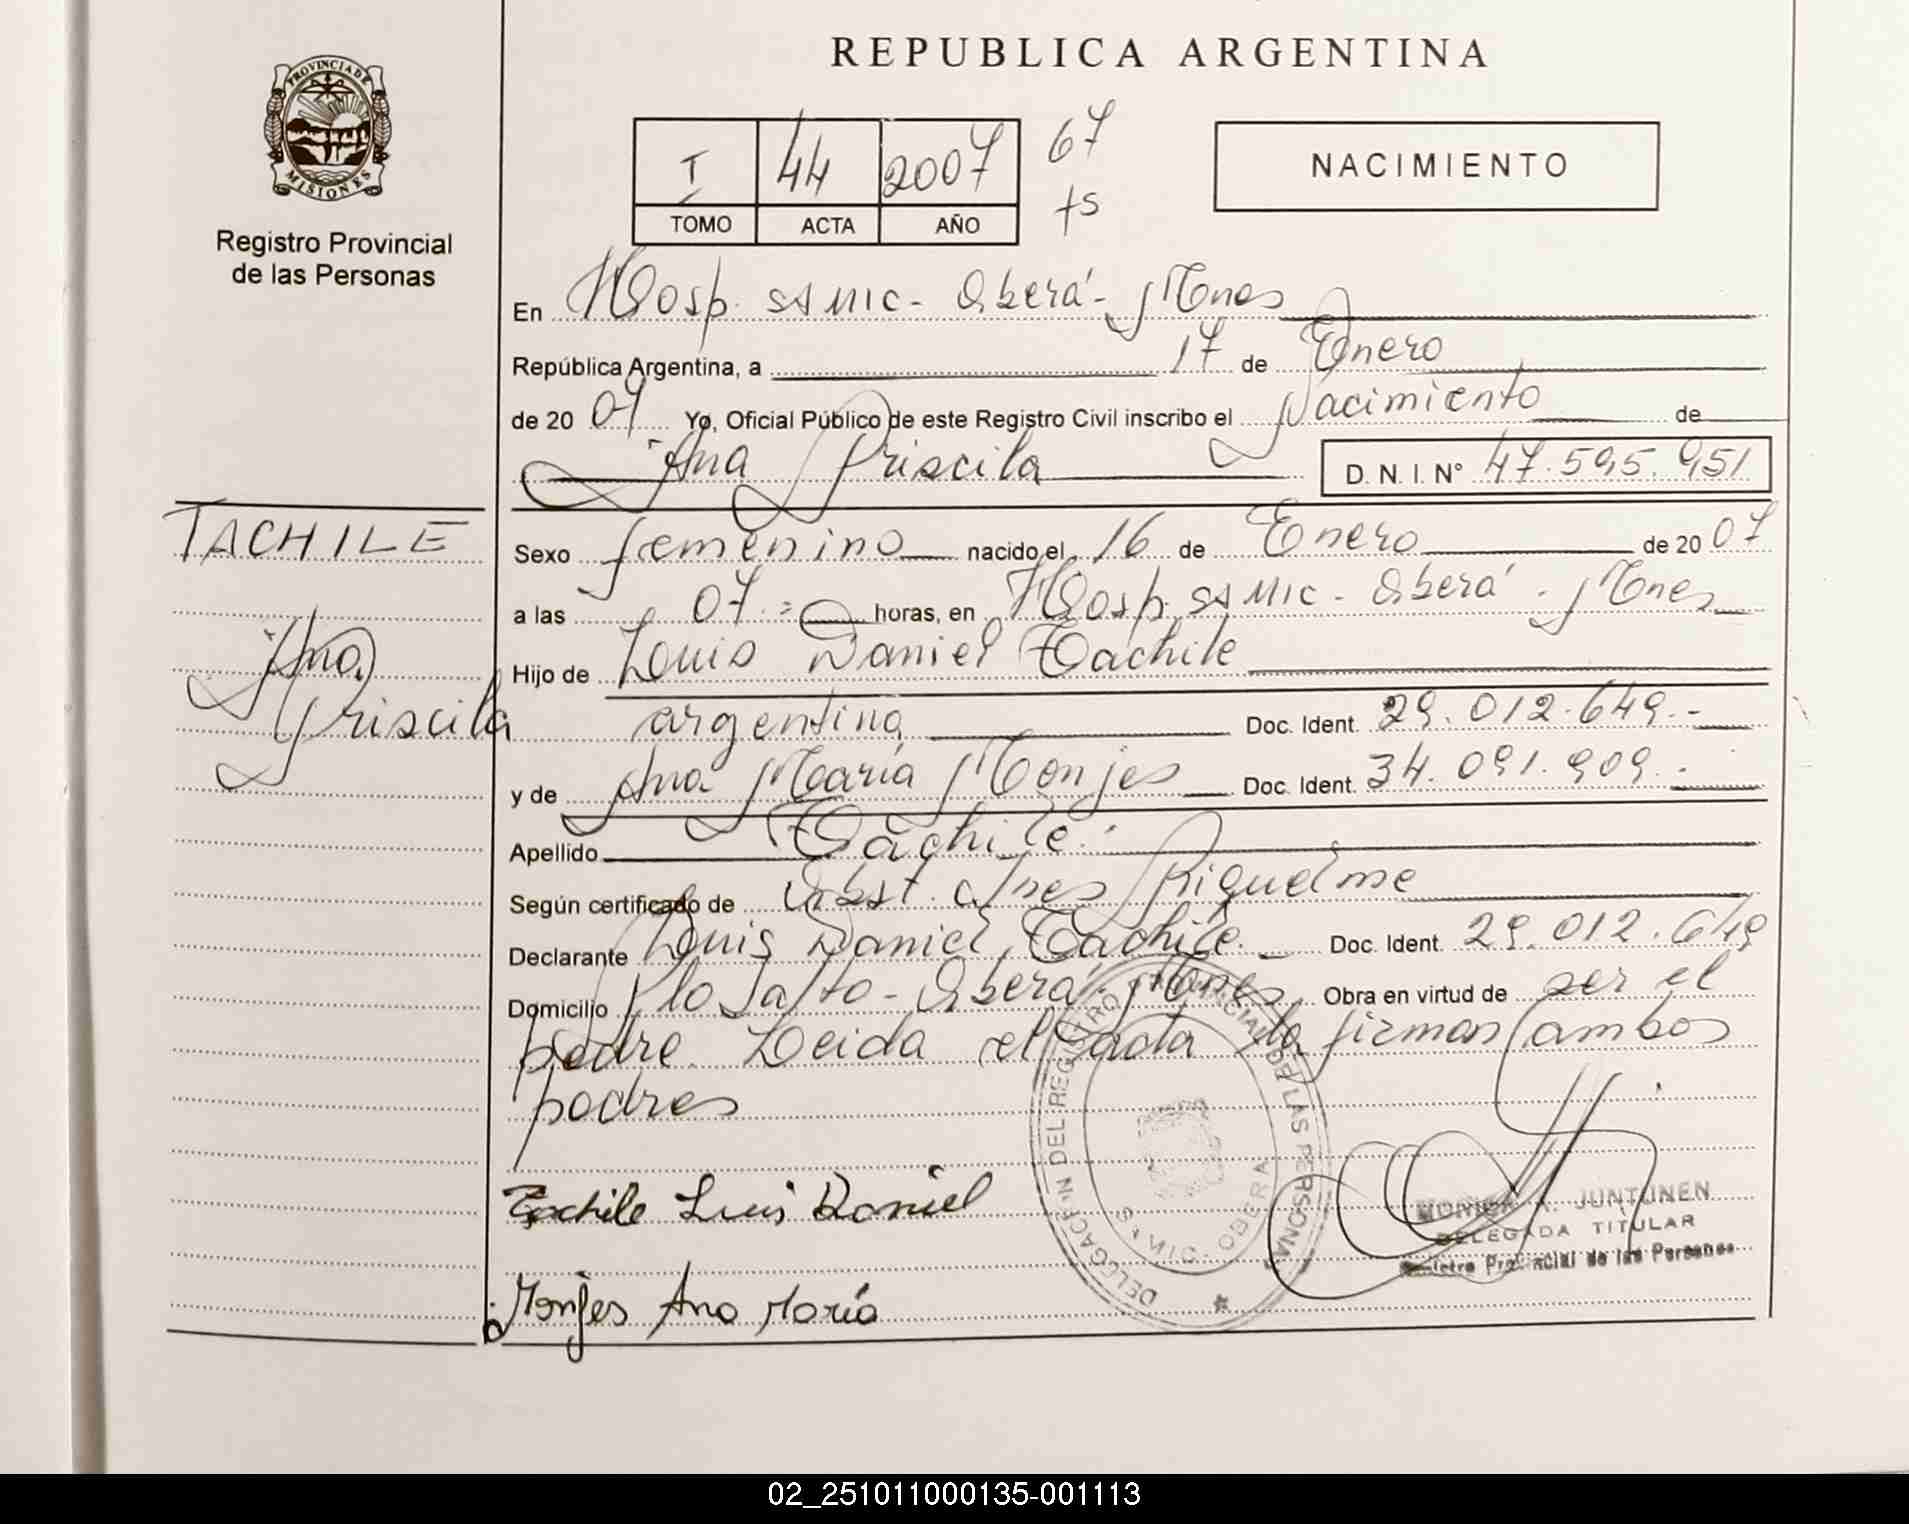 REPUBLICA ARGENTINA
PROVINCIA DE
MISIONES
Registro Provincial
de las Personas
I 44 2007 67
TOMO ACTA AÑO
NACIMIENTO
En Hosp. SAMIC - Oberá - Mnes
República Argentina, a 17 de Enero
de 20 07 Yo, Oficial Público de este Registro Civil inscribo el Nacimiento de
Ana Priscila D. N. I. Nº 47.595.951
TACHILE
Ana
Priscila
Sexo femenino nacido el 16 de Enero de 20 07
a las 07:= horas, en Hosp. SAMIC - Oberá - Mnes
Hijo de Luis Daniel Tachile
argentina Doc. Ident. 29.012.649.-
y de Ana María Monjes Doc. Ident. 34.091.909.-
Apellido Tachile.
Según certificado de Obst. Ines Riquelme
Declarante Luis Daniel Tachile. Doc. Ident. 29.012.649
Domicilio Vlo Salto - Oberá - Mnes Obra en virtud de ser el
padre. Leida el acta la firman ambos
padres
Tachile Luis Daniel
Monjes Ana María
DELEGACION DEL REGISTRO PROVINCIAL DE LAS PERSONAS
SAMIC - OBERA
MONICA A. JUNTUNEN
DELEGADA TITULAR
Registro Provincial de las Personas
02_251011000135-001113